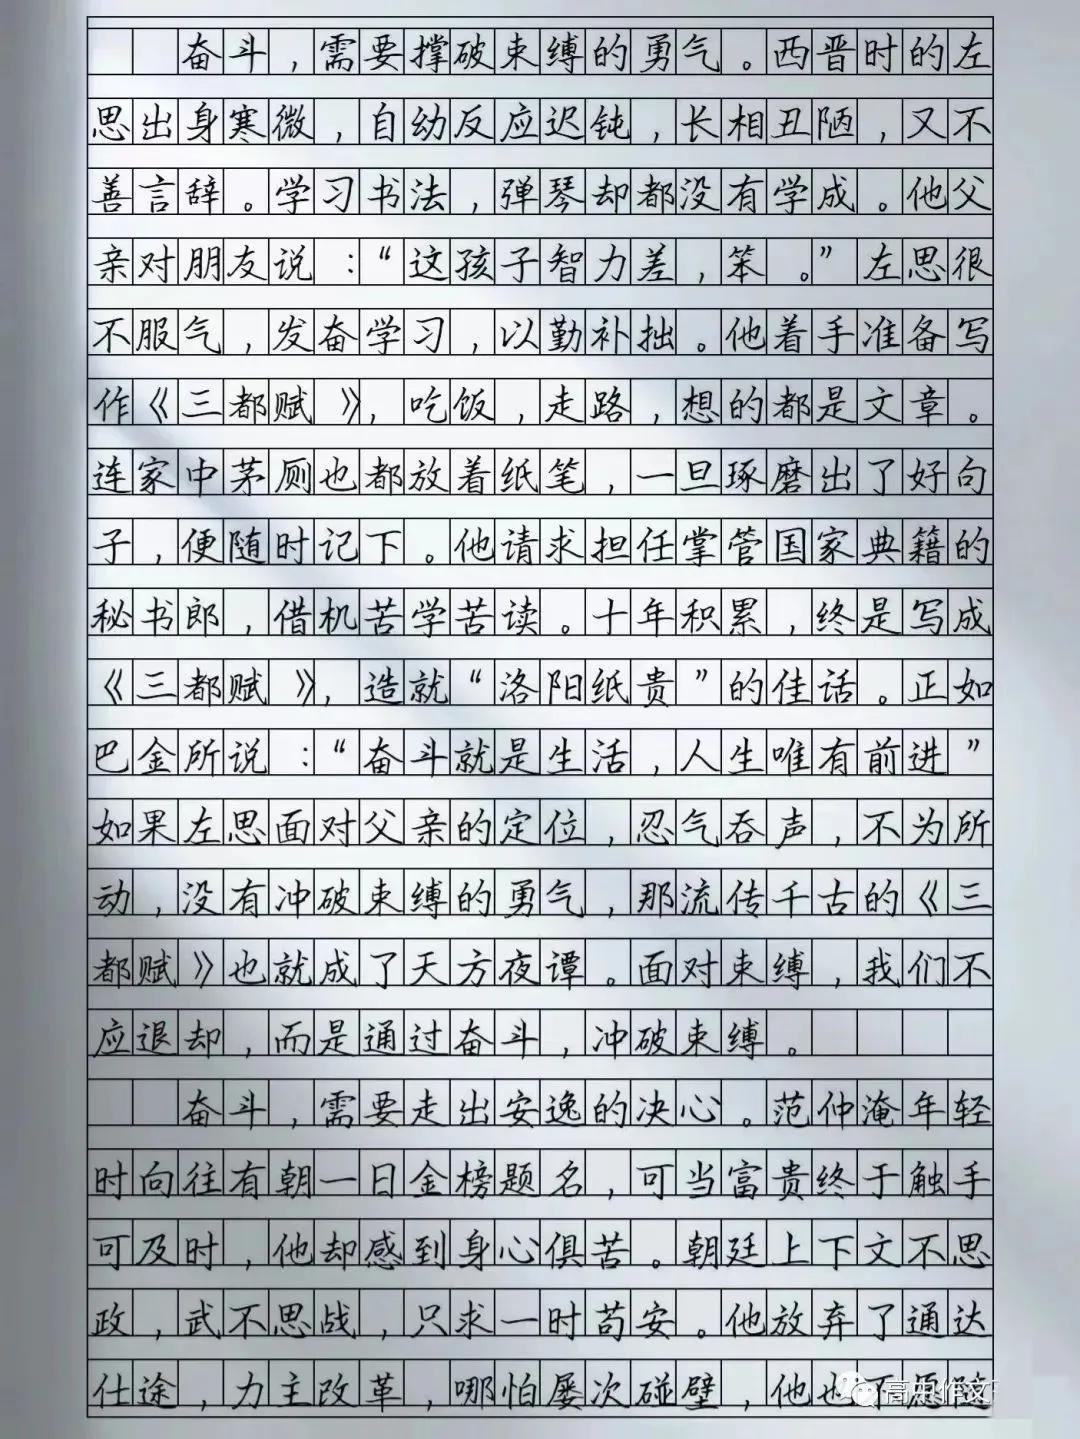 奋斗，需要撑破束缚的勇气。西晋时的左
思出身寒微，自幼反应迟钝，长相丑陋，又不
善言辞。学习书法，弹琴却都没有学成。他父
亲对朋友说：“这孩子智力差，笨。”左思很
不服气，发奋学习，以勤补拙。他着手准备写
作《三都赋》，吃饭，走路，想的都是文章。
连家中茅厕也都放着纸笔，一旦琢磨出了好句
子，便随时记下。他请求担任掌管国家典籍的
秘书郎，借机苦学苦读。十年积累，终是写成
《三都赋》，造就“洛阳纸贵”的佳话。正如
巴金所说：“奋斗就是生活，人生唯有前进”
如果左思面对父亲的定位，忍气吞声，不为所
动，没有冲破束缚的勇气，那流传千古的《三
都赋》也就成了天方夜谭。面对束缚，我们不
应退却，而是通过奋斗，冲破束缚。
奋斗，需要走出安逸的决心。范仲淹年轻
时向往有朝一日金榜题名，可当富贵终于触手
可及时，他却感到身心俱苦。朝廷上下文不思
政，武不思战，只求一时苟安。他放弃了通达
仕途，力主改革，哪怕屡次碰壁，他也不愿随
高中作文